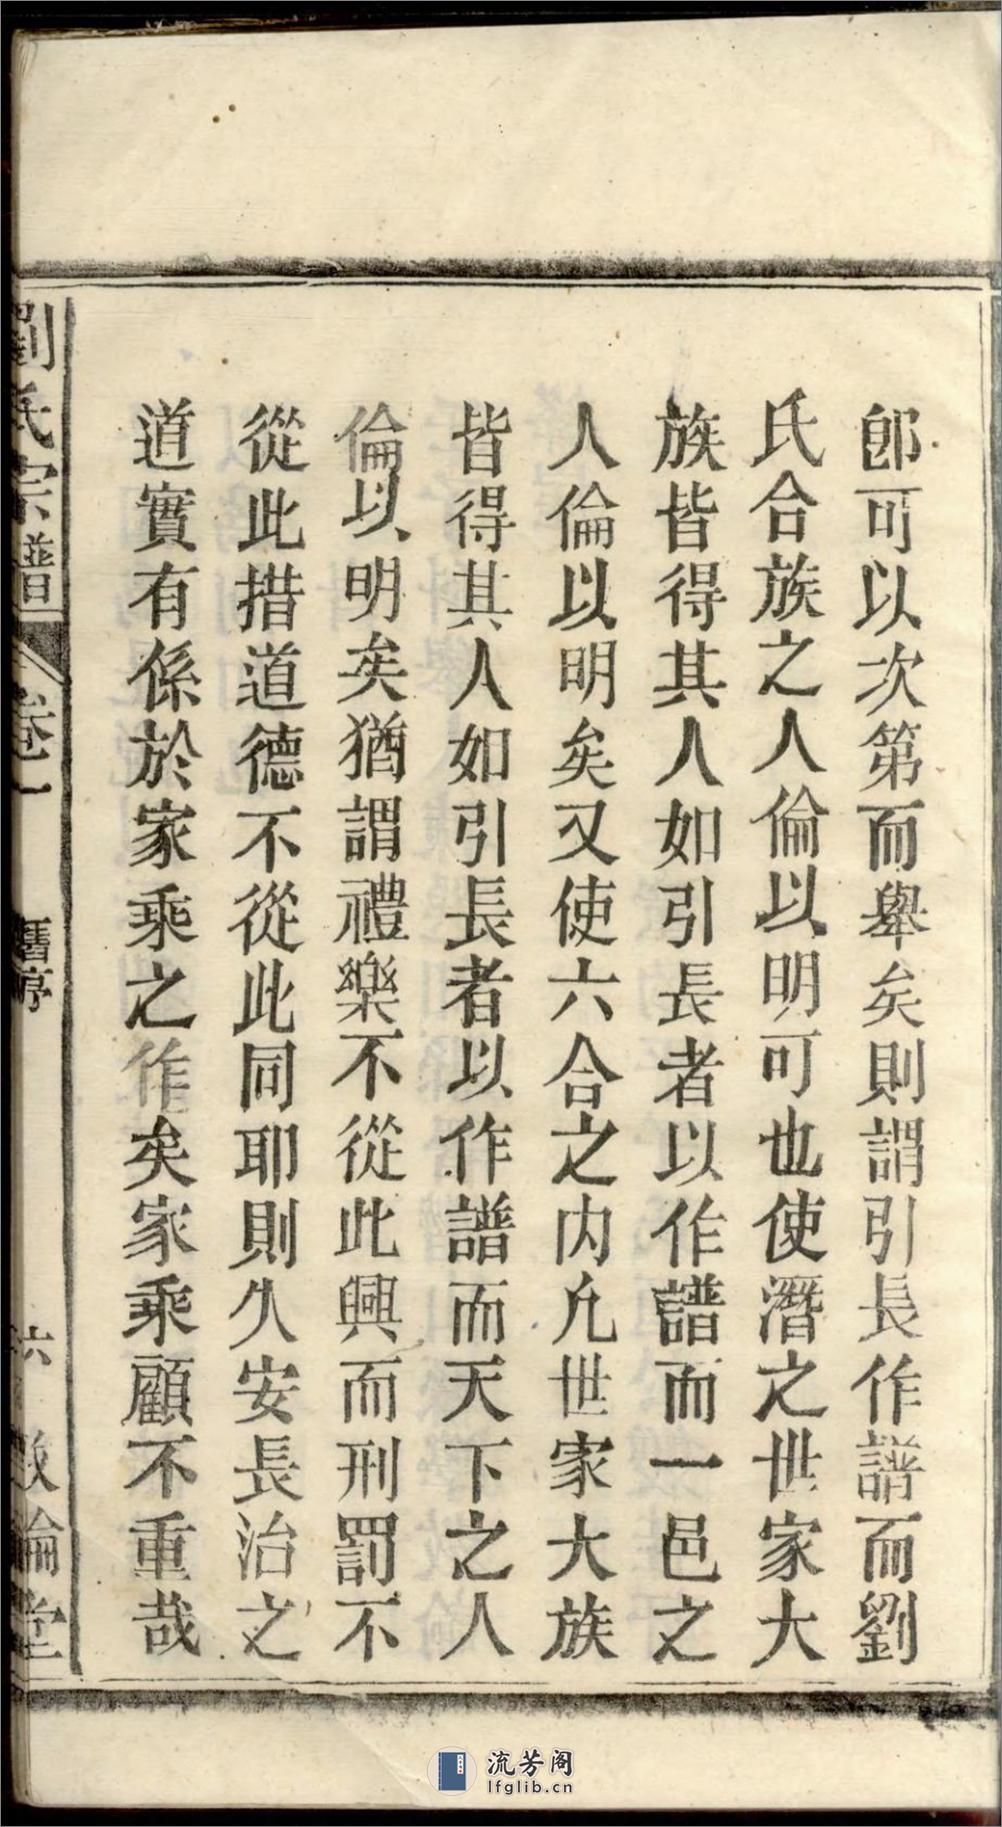 卽可以次第而舉矣則謂引長作譜而劉
氏合族之人倫以明可也使潛之世家大
族皆得其人如引長者以作譜而一邑之
人倫以明矣又使六合之内凡世家大族
皆得其人如引長者以作譜而天下之人
倫以明矣猶謂禮樂不從此興而刑罰不
從此措道德不從此同耶則久安長治之
道實有係於家乘之作矣家乘顧不重哉
劉氏宗譜
卷一
舊序
六
敦倫堂
流芳阁
lfglib.cn